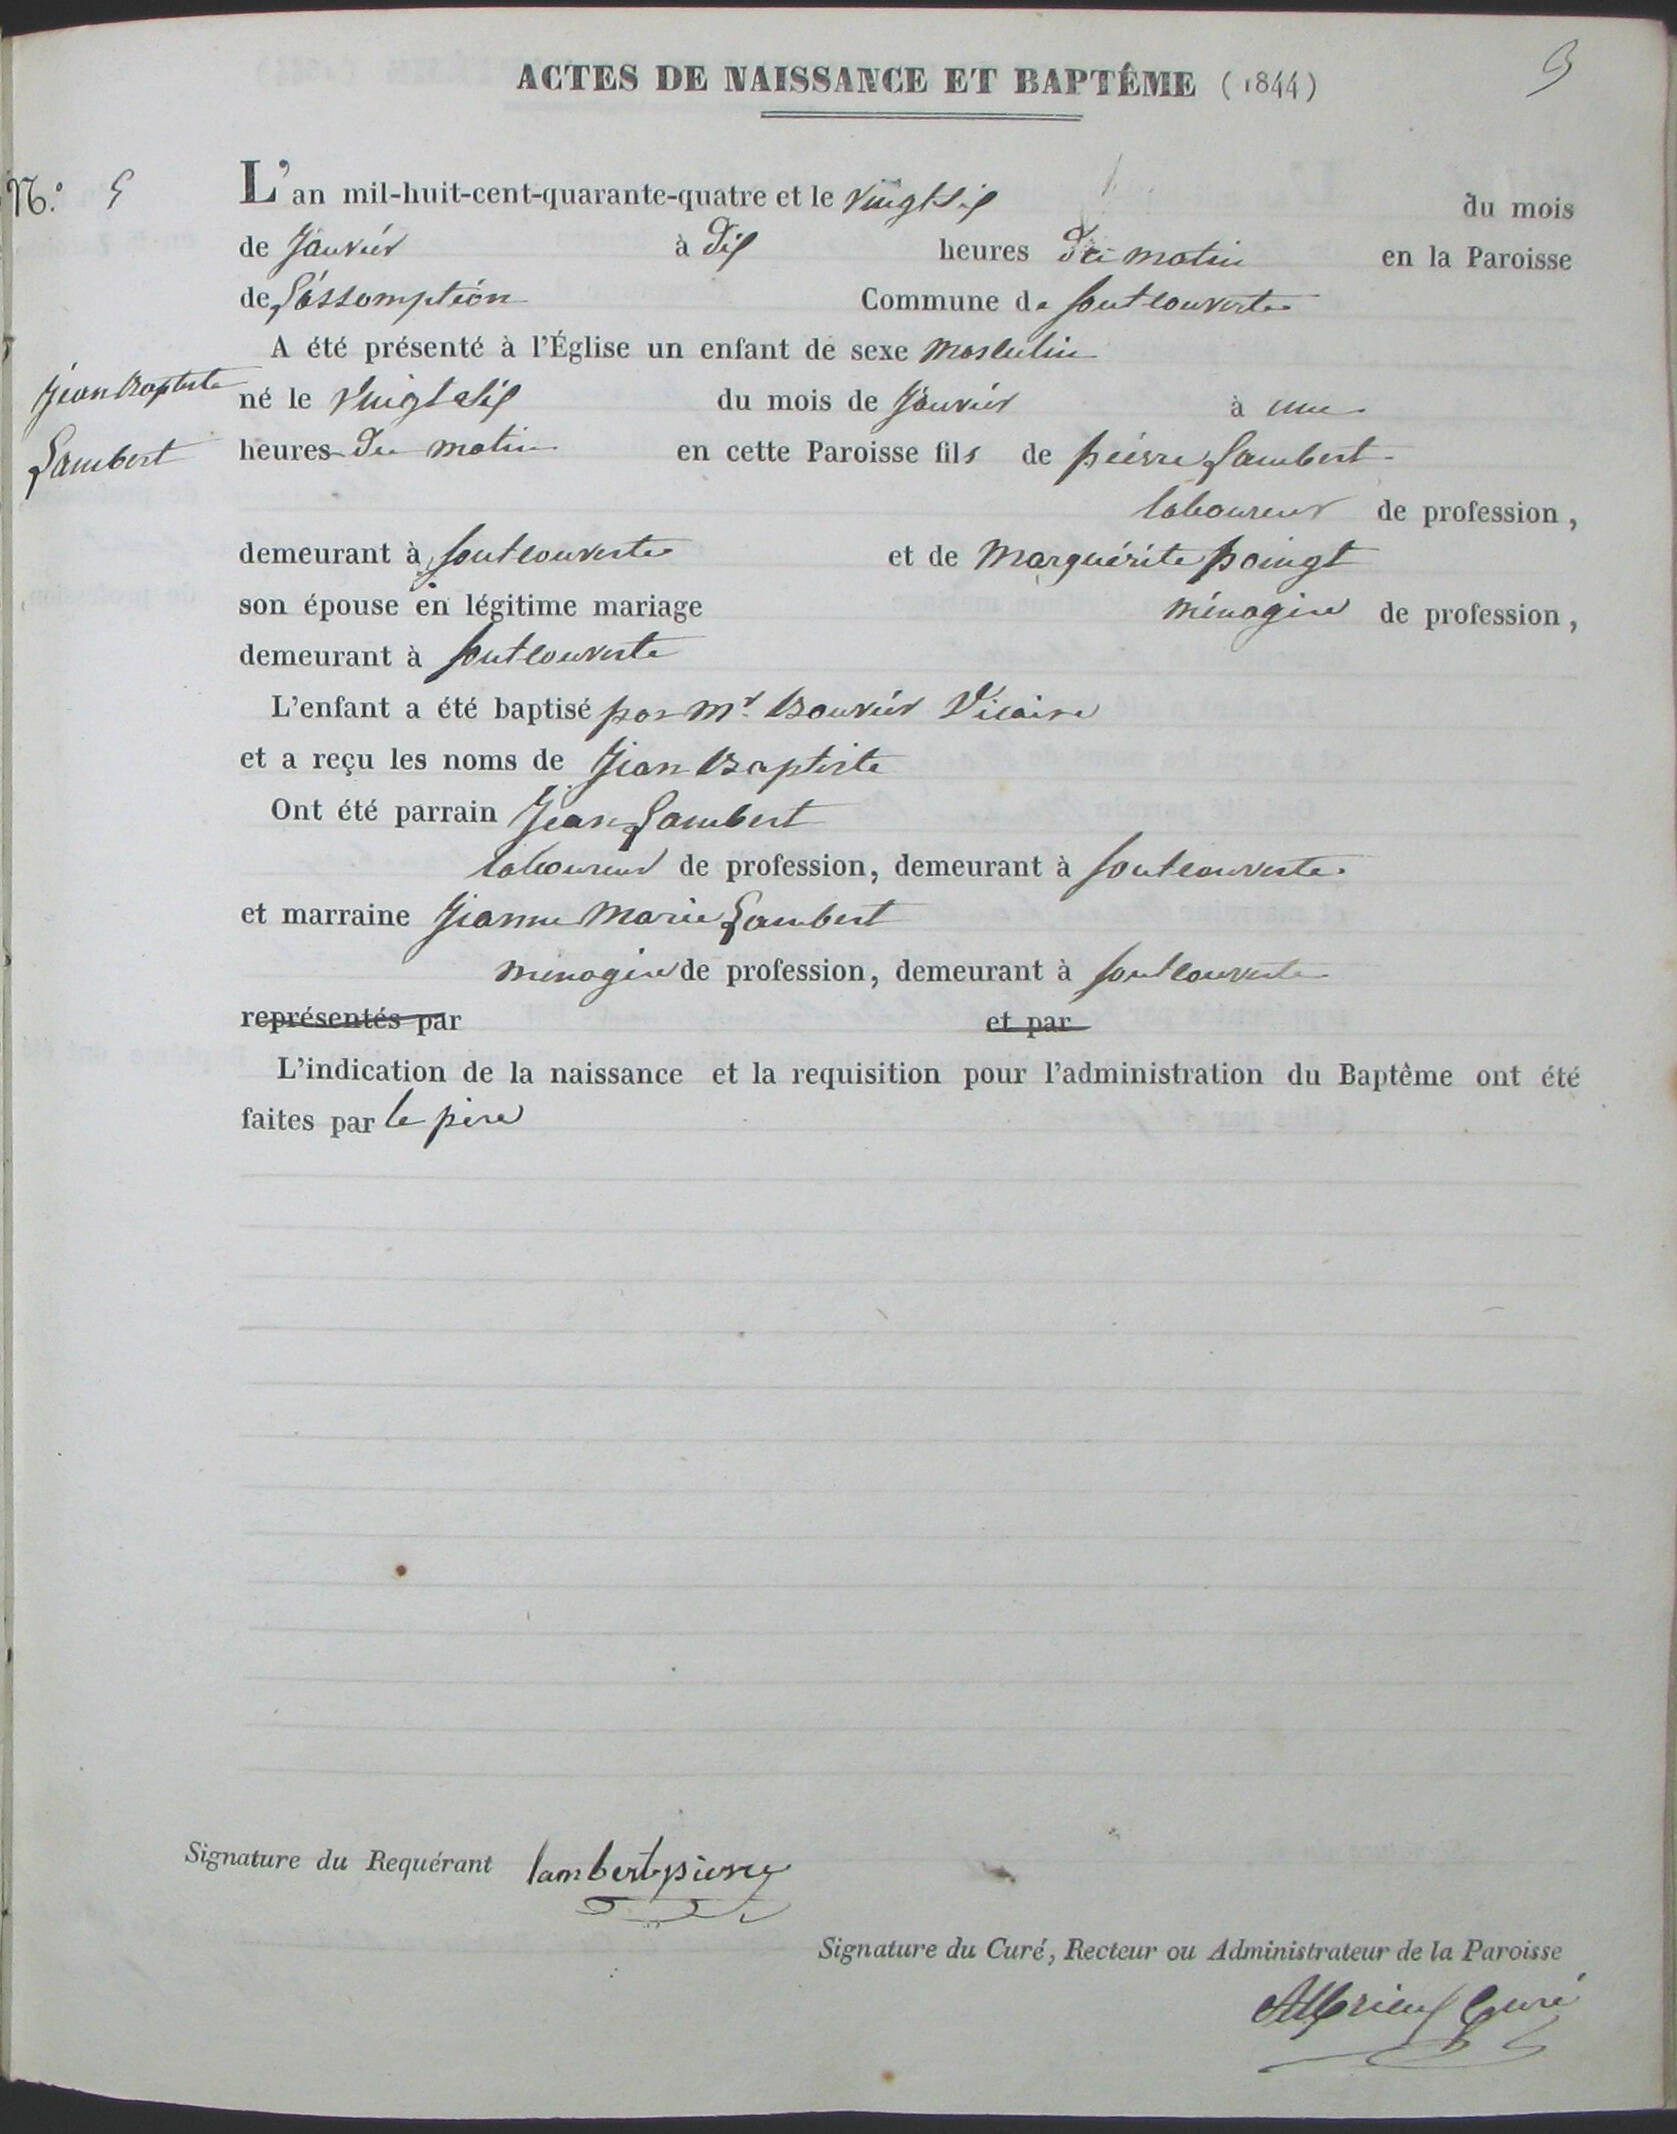 ACTES DE NAISSANCE ET BAPTÊME (1844)
N.° 5
L'an mil-huit-cent-quarante-quatre et le vingt six du mois
de Janvier à dix heures du matin en la Paroisse
de L'assomption Commune de Pontcouverte
A été présenté à l'Église un enfant de sexe masculin
Jean Baptiste
Lambert
né le vingt six du mois de Janvier à une
heures du matin en cette Paroisse fils de pierre Lambert
laboureur de profession,
demeurant à fontcouverte et de Marguérite poingt
son épouse en légitime mariage ménagère de profession,
demeurant à fontcouverte
L'enfant a été baptisé par Mr. Bouvier Vicaire
et a reçu les noms de Jean Baptiste
Ont été parrain Jean Lambert
laboureur de profession, demeurant à fontcouverte
et marraine Jeanne Marie Lambert
ménagère de profession, demeurant à fontcouverte
représentés par et par
L'indication de la naissance et la requisition pour l'administration du Baptême ont été
faites par le père
Signature du Requérant lambert pierre
Signature du Curé, Recteur ou Administrateur de la Paroisse
Curé